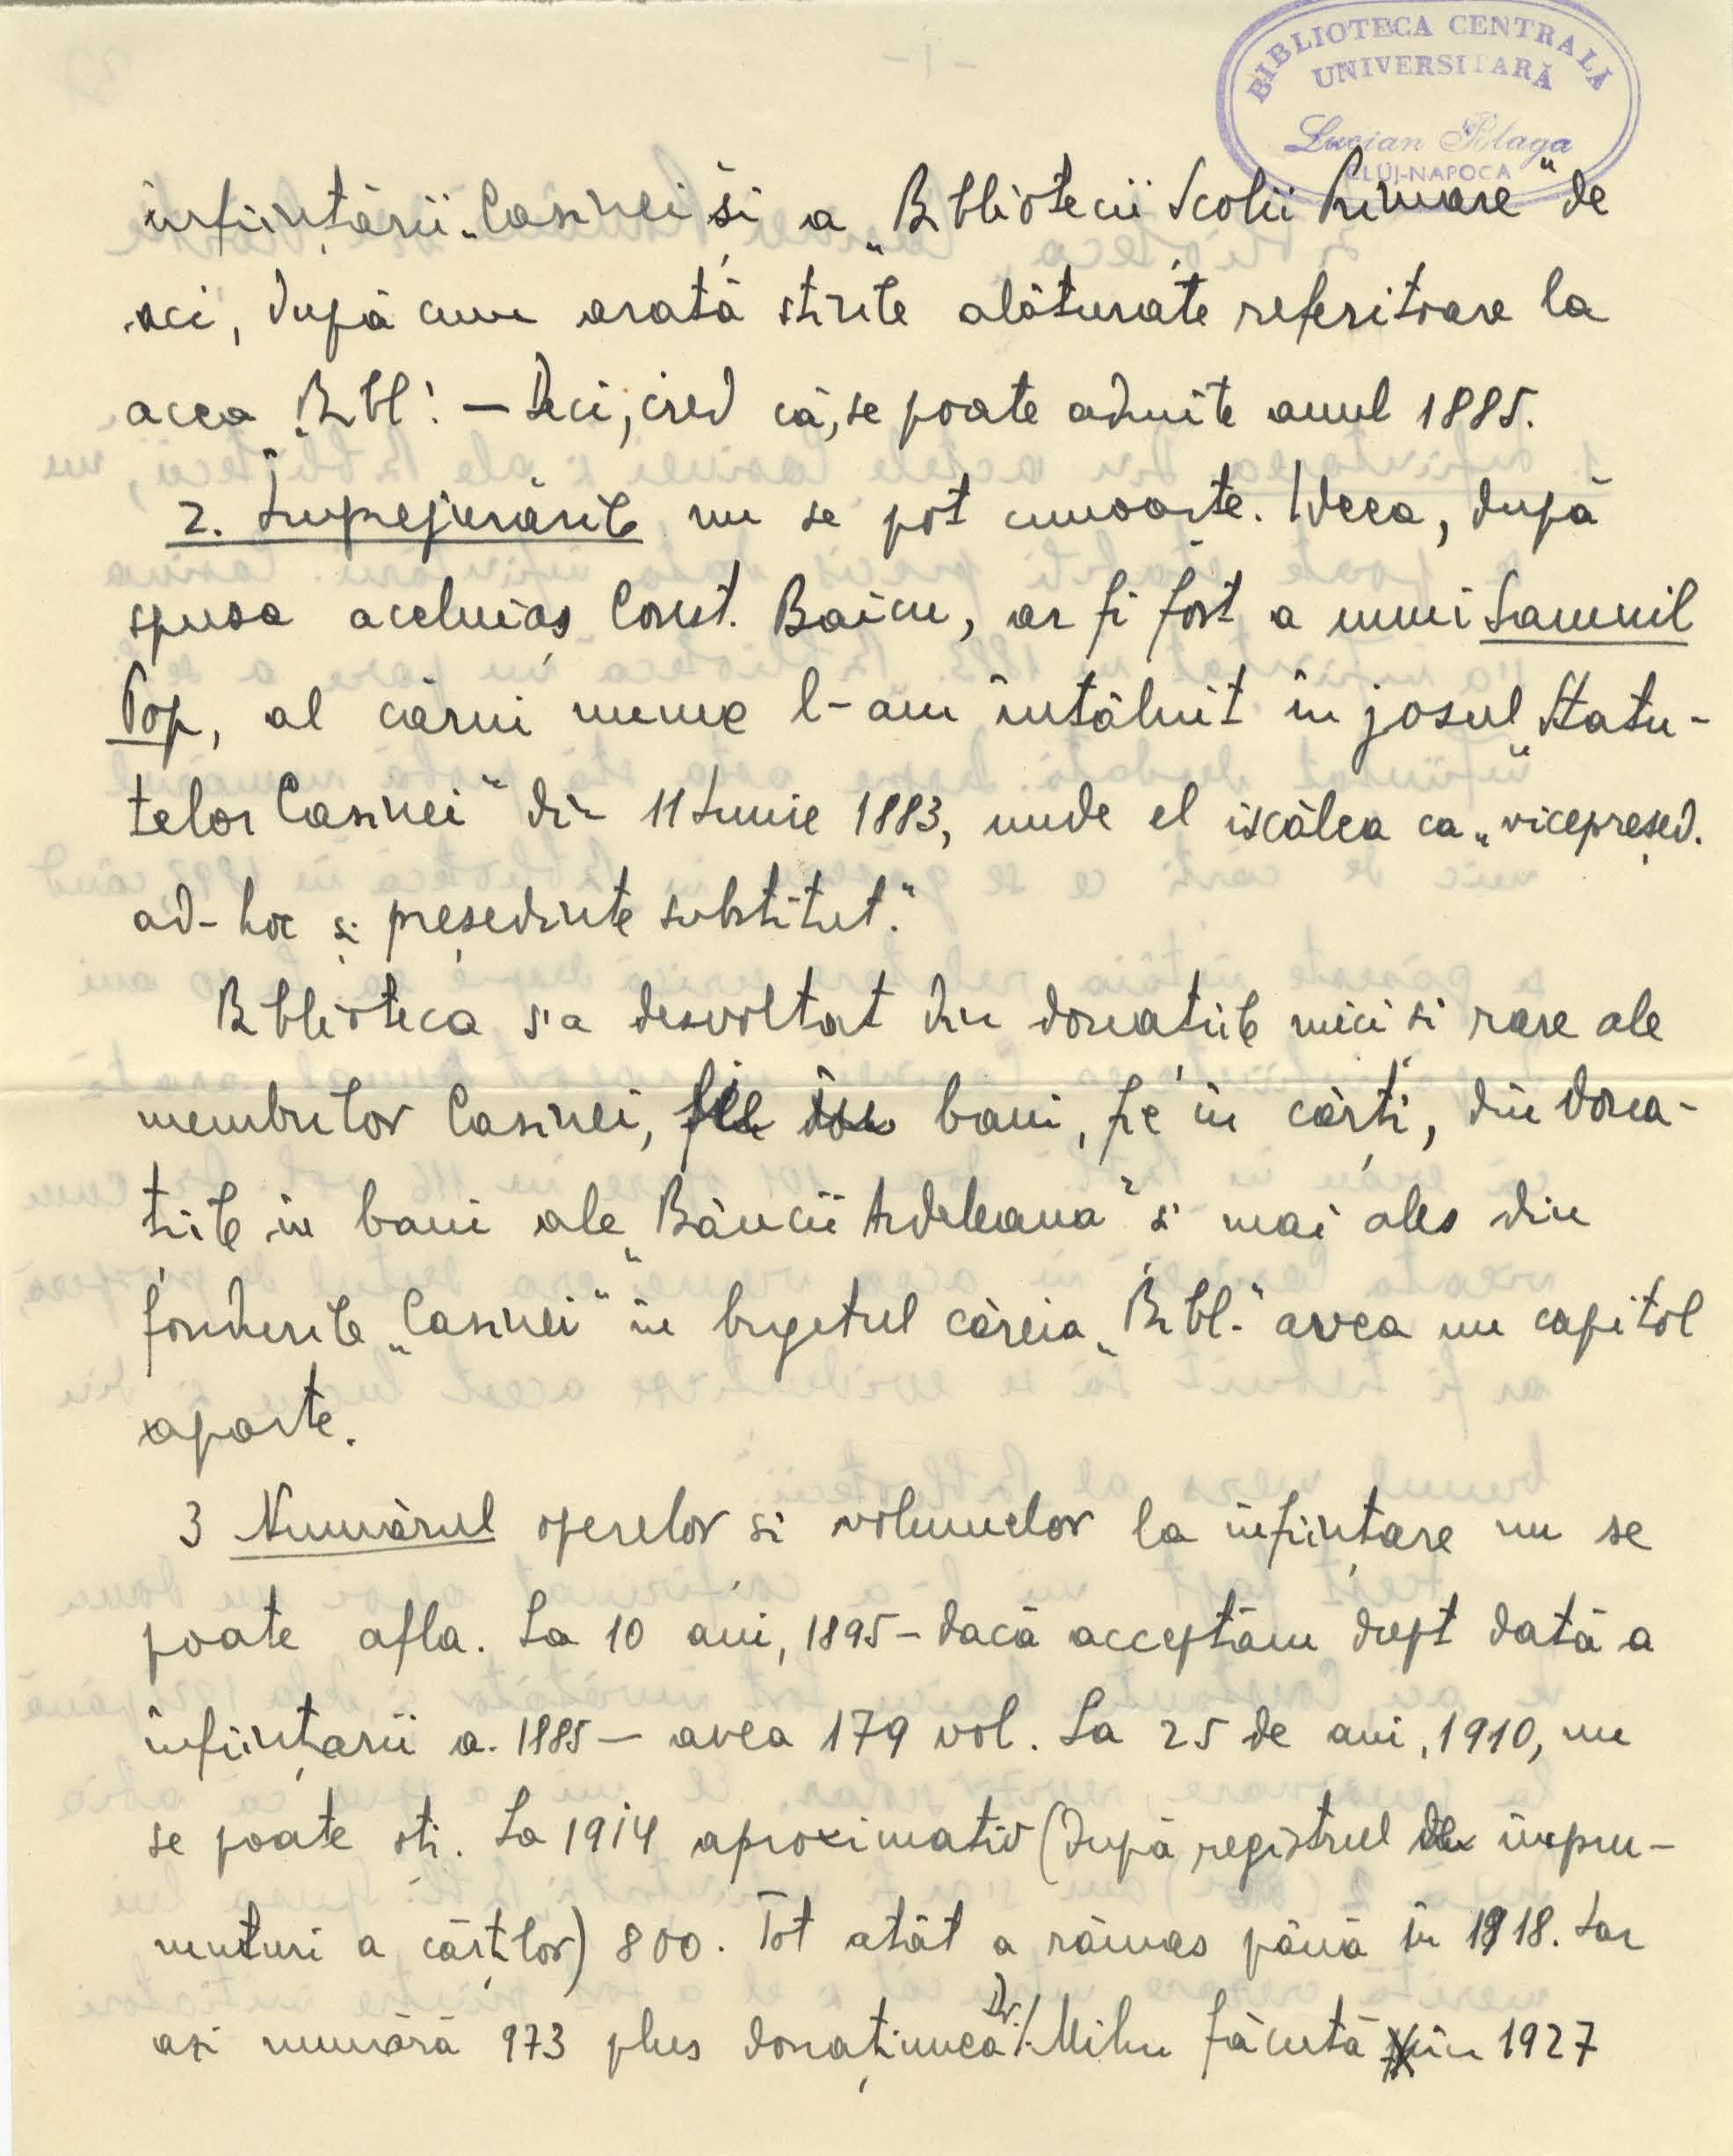 BIBLIOTECA CENTRALĂ
UNIVERSITARĂ
Lucian Blaga
CLUJ-NAPOCA
înființării „Casinei și a „Bibliotecii Școlii Primare" de
aci, după cum arată știrile alăturate referitoare la
acea „Bibl." — Deci, cred că, se poate admite anul 1885.
2. Împrejurările nu se pot cunoaște. Ideea, după
spusa aceluiaș Const. Baicu, ar fi fost a unui Samuil
Pop, al cărui nume l-am întâlnit în josul „Statu-
telor Casinei" din 11 Iunie 1883, unde el iscălea ca „vicepreșed.
ad-hoc și președinte substitut."
Biblioteca s'a desvoltat din donațiile mici și rare ale
membrilor Casinei, fie în bani, fie în cărți, din dona-
țiile în bani ale „Băncii Ardeleana" și mai ales din
fondurile „Casinei" în bugetul căreia „Bibl." avea un capitol
aparte.
3 Numărul operelor și volumelor la înființare nu se
poate afla. La 10 ani, 1895 – dacă acceptăm drept dată a
înființării a. 1885 — avea 179 vol. La 25 de ani, 1910, nu
se poate ști. La 1914 aproximativ (după registrul de împru-
muturi a cărților) 800. Tot atât a rămas până în 1918. Iar
azi numără 973 plus donațiunea Dr. I. Mihu făcută în 1927